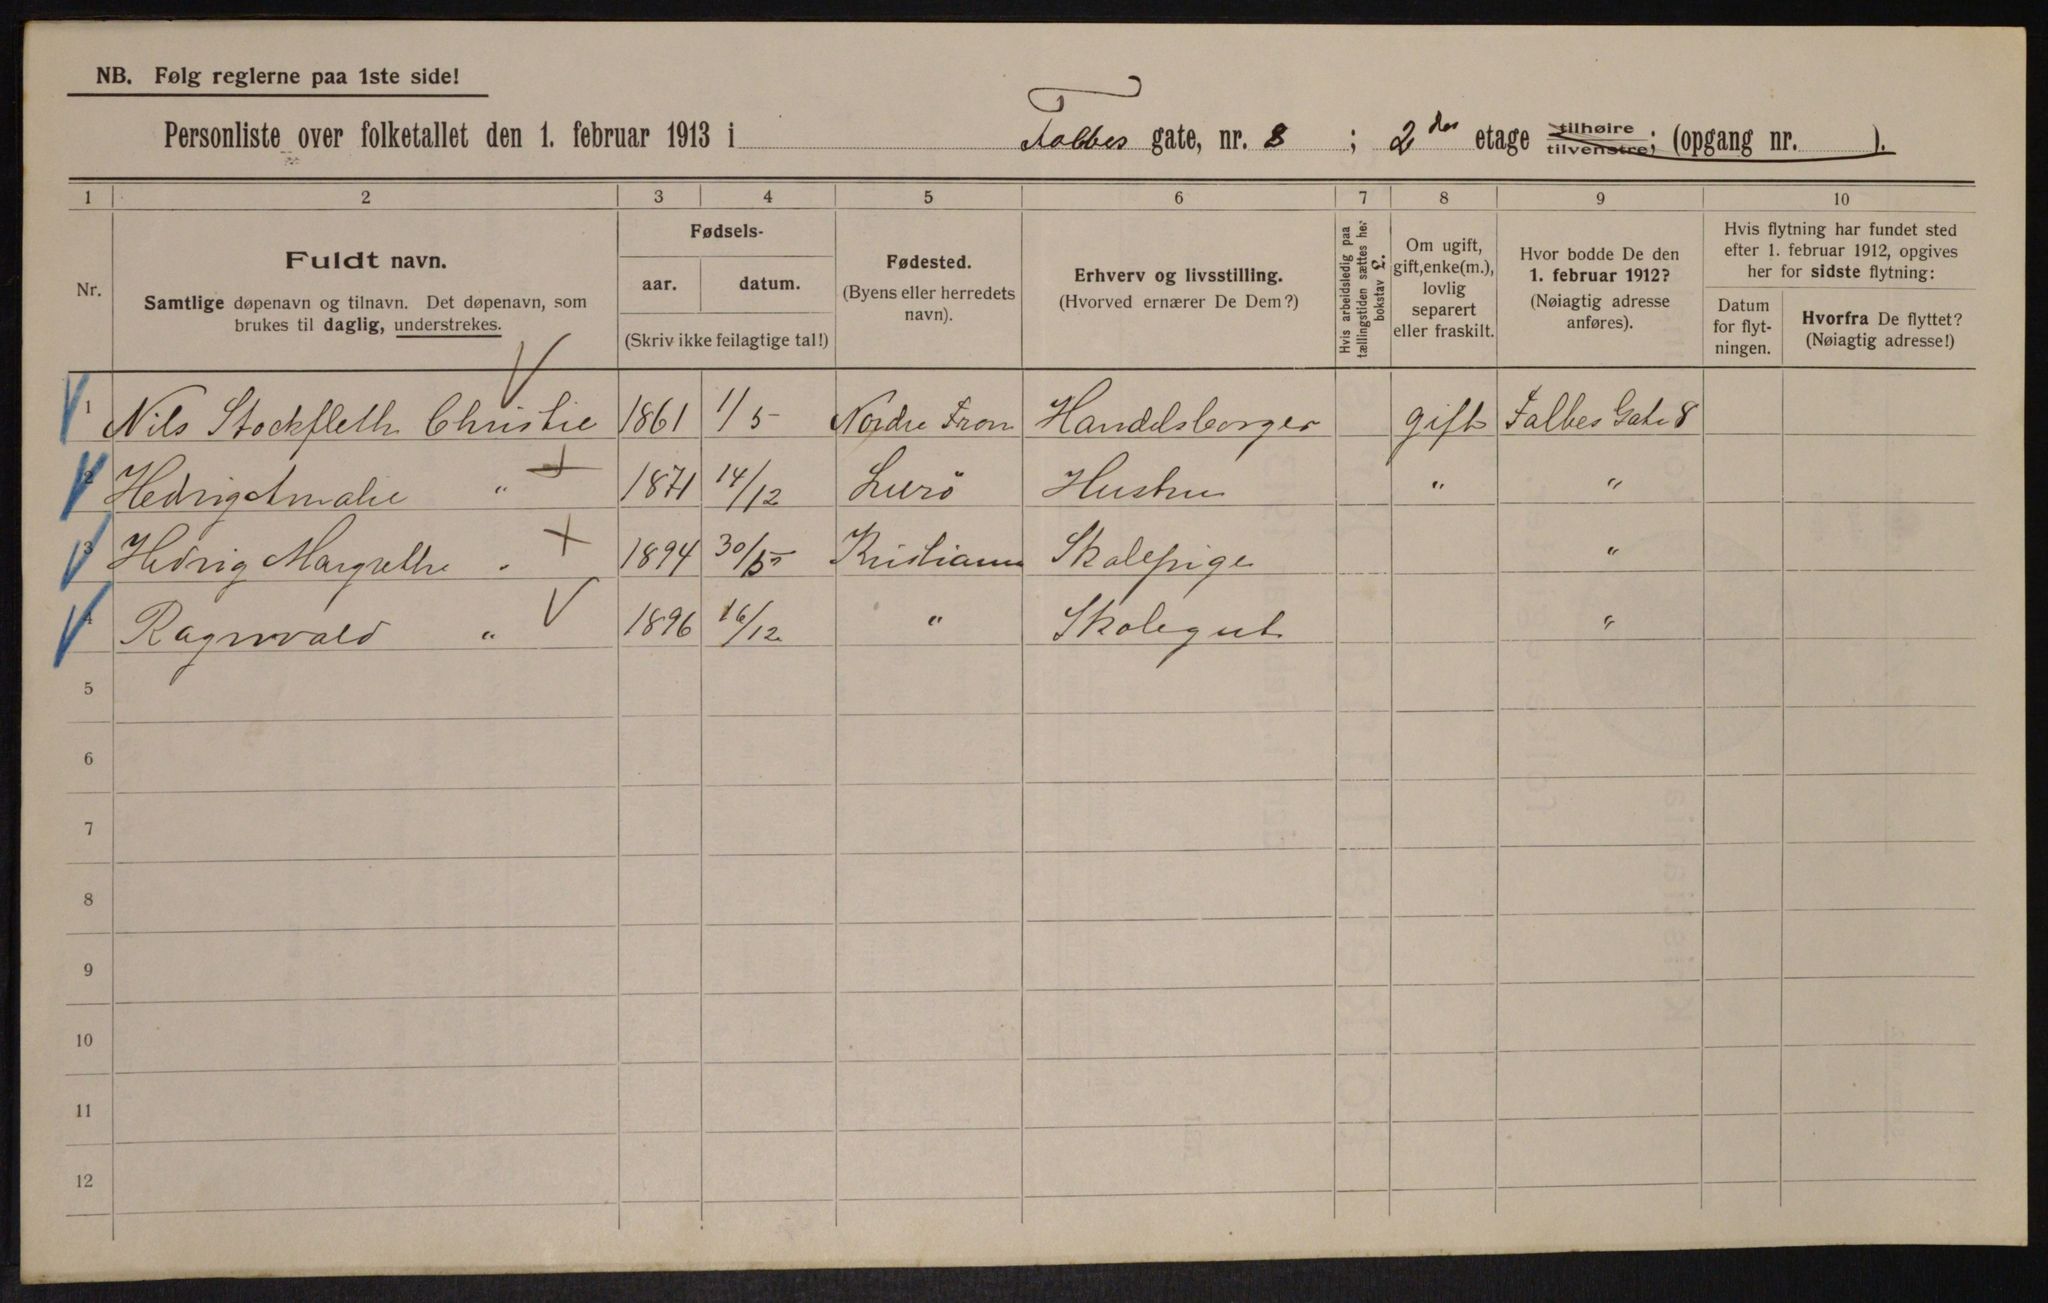 NB. Følg reglerne paa 1ste side!
Personliste over folketallet den 1. februar 1913 i Falbes gate, nr. 8 ; 2 den etage tilhøire tilvenstre; (opgang nr. ).
1 2 3 4 5 6 7 8 9 10
Nr.
Fuldt navn.
Samtlige døpenavn og tilnavn. Det døpenavn, som
brukes til daglig, understrekes.
Fødsels-
aar. datum.
(Skriv ikke feilagtige tal!)
Fødested.
(Byens eller herredets
navn).
Erhverv og livsstilling.
(Hvorved ernærer De Dem?)
Hvis arbeidsledig paa
tællingstiden sættes her
bokstav L.
Om ugift,
gift, enke(m.),
lovlig
separert
eller fraskilt.
Hvor bodde De den
1. februar 1912?
(Nøiagtig adresse
anføres).
Hvis flytning har fundet sted
efter 1. februar 1912, opgives
her for sidste flytning:
Datum
for flyt-
ningen.
Hvorfra De flyttet?
(Nøiagtig adresse!)
1 Nils Stockfleth Christie 1861 1/5 Nordre Fron Handelsborger gift Falbes Gate 8
2 Hedvig Amalie " 1871 14/12 Lurö Hustru " "
3 Hedvig Margrethe " 1894 30/5 Kristiania Skolepige "
4 Ragnvald " 1896 16/12 " Skolegut "
5
6
7
8
9
10
11
12